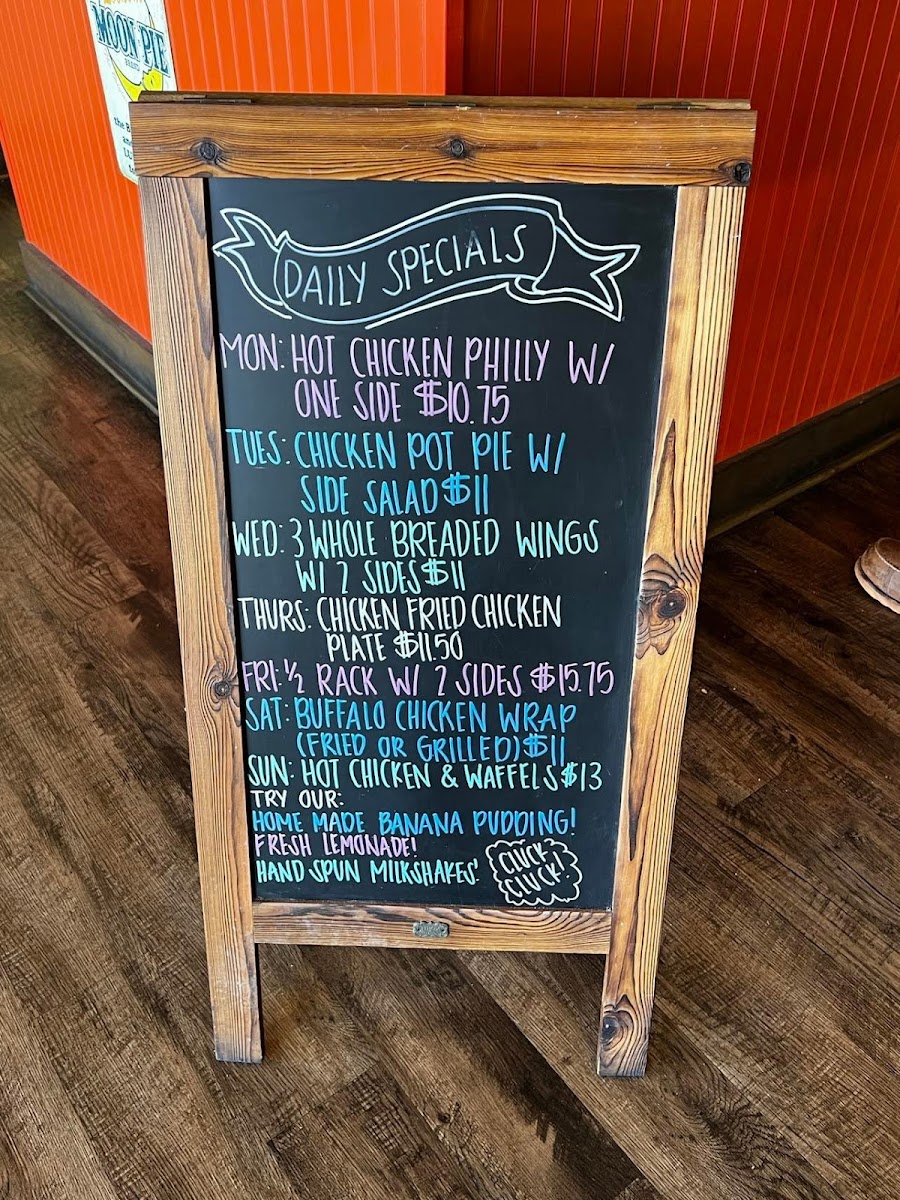 MOON PIE
DAILY SPECIALS
MON: HOT CHICKEN PHILLY W/
ONE SIDE $10.75
TUES: CHICKEN POT PIE W/
SIDE SALAD $11
WED: 3 WHOLE BREADED WINGS
W/ 2 SIDES $11
THURS: CHICKEN FRIED CHICKEN
PLATE $11.50
FRI: 1/2 RACK W/ 2 SIDES $15.75
SAT: BUFFALO CHICKEN WRAP
(FRIED OR GRILLED) $11
SUN: HOT CHICKEN & WAFFELS $13
TRY OUR:
HOME MADE BANANA PUDDING!
FRESH LEMONADE!
HAND SPUN MILKSHAKES!
CLUCK
CLUCK!